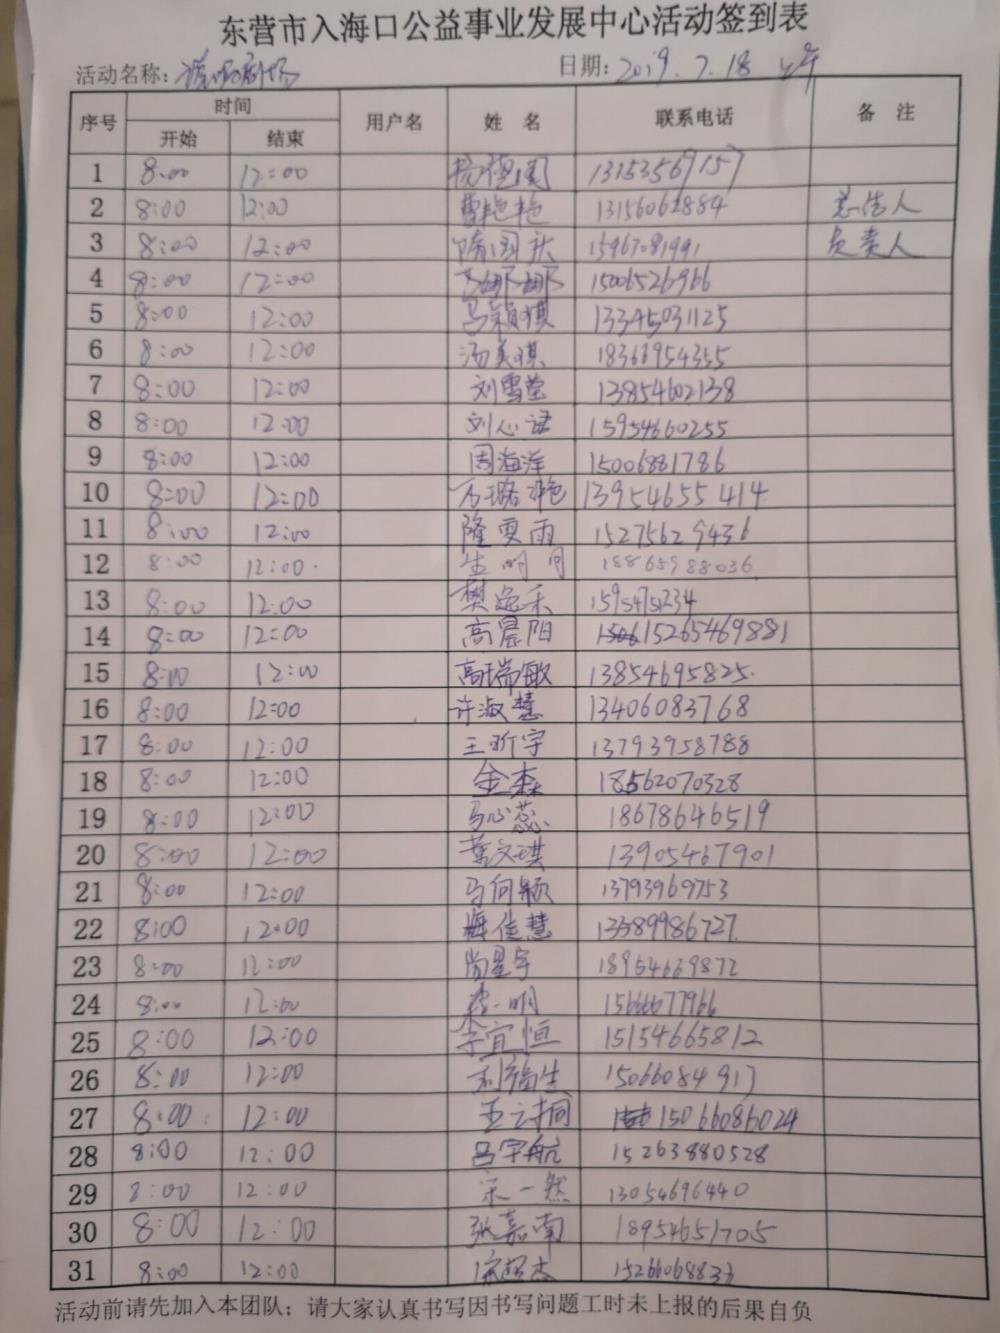 东营市入海口公益事业发展中心活动签到表
活动名称: 日期: 2019.7.18 上午
序号 时间 用户名 姓名 联系电话 备注
开始 结束
1 8:00 12:00 杨德国 13153569157
2 8:00 12:00 曹艳艳 13156062884 总结人
3 8:00 12:00 隋国庆 15967081991 负责人
4 8:00 12:00 娜娜 15006526966
5 8:00 12:00 马颖祺 13345031125
6 8:00 12:00 汤美琪 18366954355
7 8:00 12:00 刘雪莹 13854602138
8 8:00 12:00 刘心语 15954660255
9 8:00 12:00 周海洋 15006881786
10 8:00 12:00 13954655414
11 8:00 12:00 隆雯雨 15275629436
12 8:00 12:00 生明月 18865988036
13 8:00 12:00 樊逸禾 15954751234
14 8:00 12:00 高晨阳 15265469881
15 8:00 12:00 高瑞敏 13854695825
16 8:00 12:00 许淑慧 13406083768
17 8:00 12:00 王昕宇 13793958788
18 8:00 12:00 金森 18562070328
19 8:00 12:00 马心蕊 18678646519
20 8:00 12:00 葉文琪 13905467901
21 8:00 12:00 马向颖 13793969753
22 8:00 12:00 梅佳慧 13589986727
23 8:00 12:00 尚星宇 18954639872
24 8:00 12:00 李一明 15666677966
25 8:00 12:00 李宜恒 15154665812
26 8:00 12:00 15066084917
27 8:00 12:00 王诗桐 15066086024
28 8:00 12:00 吕宇航 15263880528
29 8:00 12:00 宋一然 13054696440
30 8:00 12:00 张嘉南 18954651705
31 8:00 12:00
活动前请先加入本团队；请大家认真书写因书写问题工时未上报的后果自负